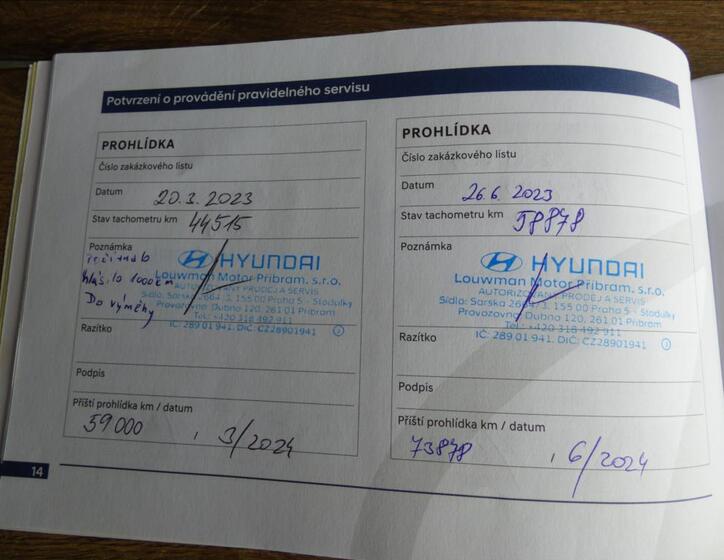 Potvrzení o provádění pravidelného servisu
PROHLÍDKA
Číslo zakázkového listu
Datum 20.3.2023
Stav tachometru km 44515
Poznámka
hlásilo 1000 km
Do výměny
HYUNDAI
Louwman Motor Příbram, s.r.o.
AUTORIZOVANÝ PRODEJ A SERVIS
Sídlo: Sárská 2664/3, 155 00 Praha 5 - Stodůlky
Provozovna: Dubno 120, 261 01 Příbram
Tel.: +420 318 492 911
IČ: 289 01 941, DIČ: CZ28901941
Razítko
Podpis
Příští prohlídka km / datum
59000 , 3/2024
PROHLÍDKA
Číslo zakázkového listu
Datum 26.6. 2023
Stav tachometru km 58878
Poznámka
HYUNDAI
Louwman Motor Příbram, s.r.o.
AUTORIZOVANÝ PRODEJ A SERVIS
Sídlo: Sárská 2664/3, 155 00 Praha 5 - Stodůlky
Provozovna: Dubno 120, 261 01 Příbram
Tel.: +420 318 492 911
IČ: 289 01 941, DIČ: CZ28901941
Razítko
Podpis
Příští prohlídka km / datum
73878 , 6/2024
14